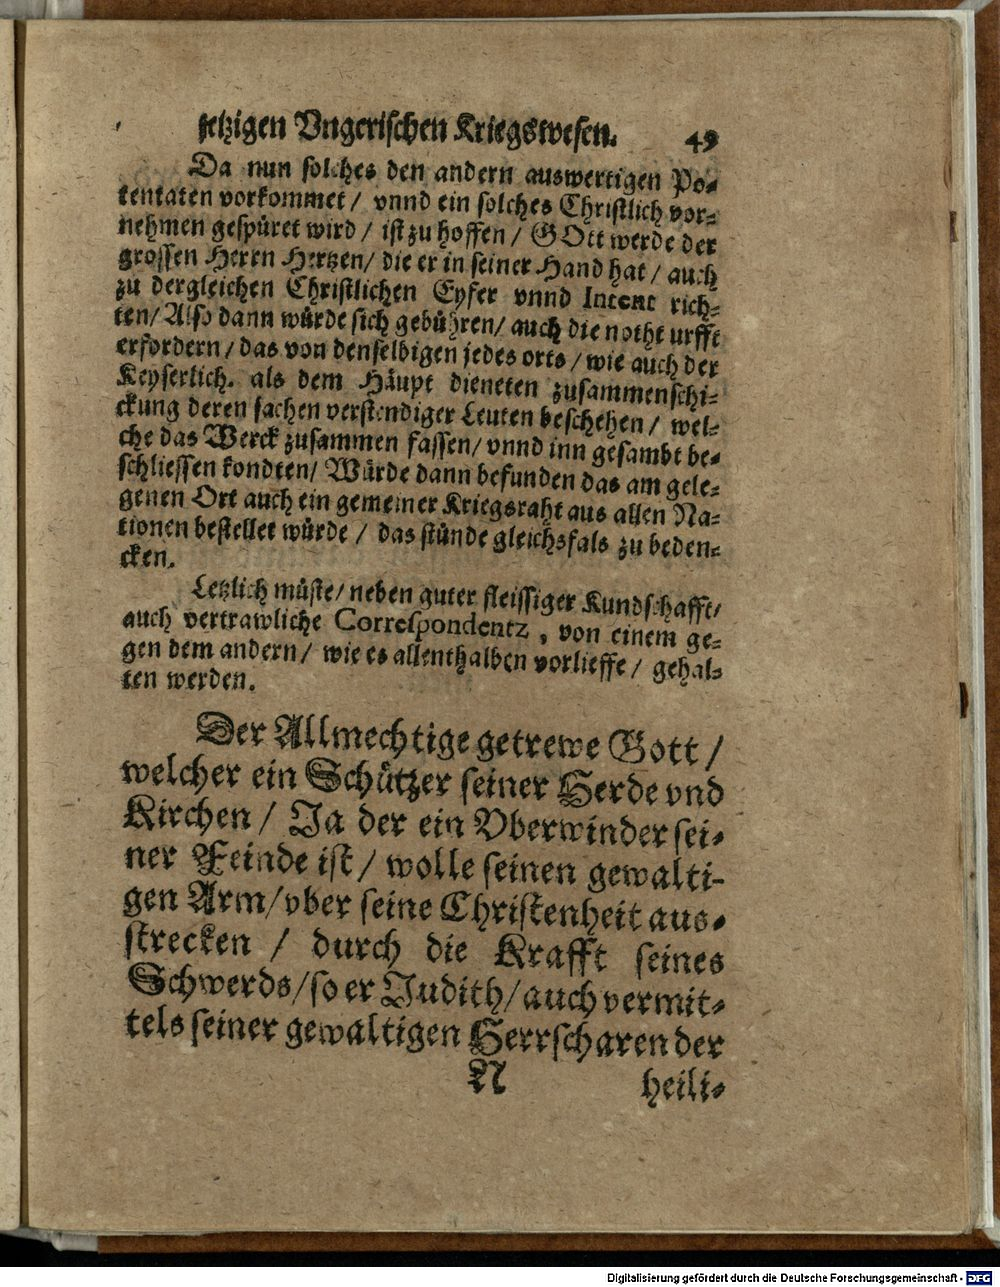 jetzigen Vngerischen Kriegswesen. 49
Da nun solches den andern auswertigen Po-
tentaten vorkommet / vnnd ein solches Christlich vor-
nehmen gespüret wird / ist zu hoffen / GOtt werde der
grossen Herrn Hertzen / die er in seiner Hand hat / auch
zu dergleichen Christlichen Eyfer vnnd Intent rich-
ten / Also dann würde sich gebühren / auch die nothturfft
erfordern / das von denselbigen jedes orts / wie auch der
Keyserlich. als dem Häupt dieneten zusammenschi-
ckung deren sachen verstendiger Leuten beschehen / wel-
che das Werck zusammen fassen / vnnd inn gesambt be-
schliessen kondten / Würde dann befunden das am gele-
genen Ort auch ein gemeiner Kriegsraht aus allen Na-
tionen bestellet würde / das stünde gleichsfals zu beden-
cken.
Letzlich müste / neben guter fleissiger Kundschafft /
auch vertrawliche Correspondentz, von einem ge-
gen dem andern / wie es allenthalben vorlieffe / gehal-
ten werden.
Der Allmechtige getrewe Gott /
welcher ein Schützer seiner Herde vnd
Kirchen / Ja der ein Vberwinder sei-
ner Feinde ist / wolle seinen gewalti-
gen Arm / vber seine Christenheit aus-
strecken / durch die Krafft seines
Schwerds / so er Judith / auch vermit-
tels seiner gewaltigen Herrscharen der
N heili-
Digitalisierung gefördert durch die Deutsche Forschungsgemeinschaft - DFG